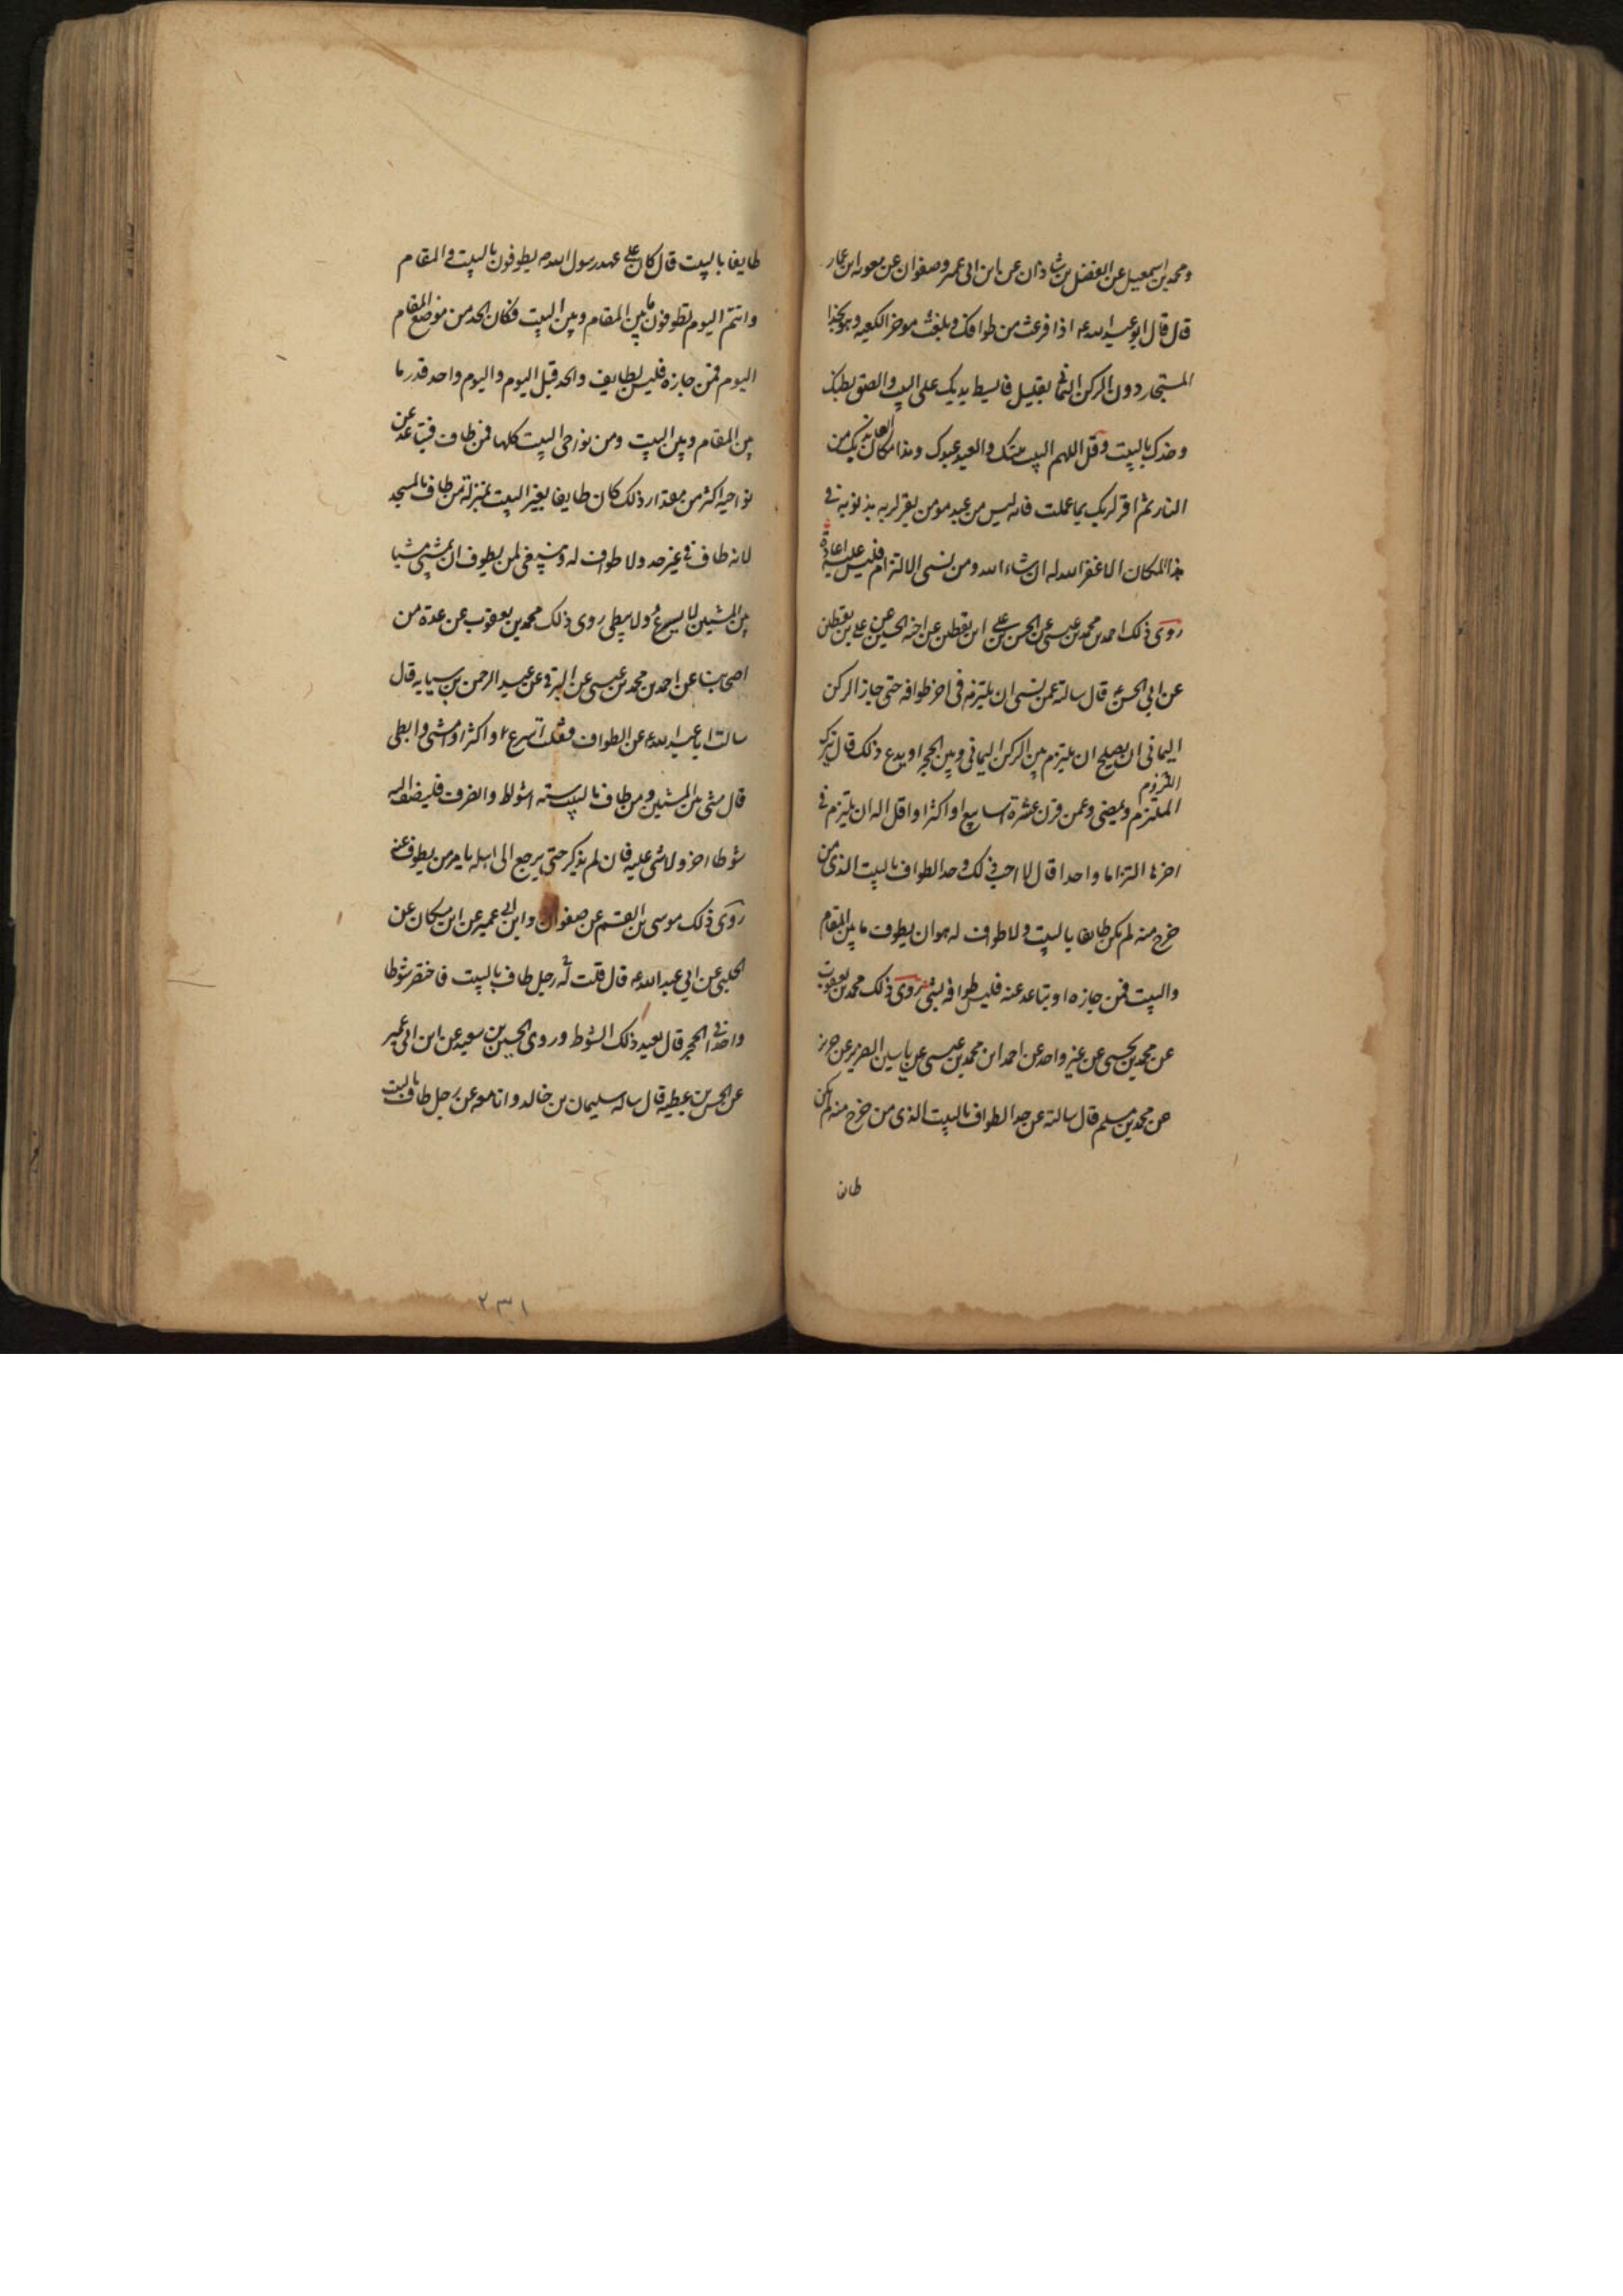 ومحمد بن اسمعيل عن الفضل بن شاذان عن ابن ابى عمير وصفوان عن معوية ابن عمار
قال قال ابو عبد الله ع اذا فرغت من طوافك وبلغت موخر الكعبه وهو بحذا
المستجار دون الركن اليمانى بقليل فابسط يديك على البيت والصق بطنك
وخدك بالبيت وقل اللهم البيت بيتك والعبد عبدك وهذا مكان العايذ بك من
النار ثم اقر لربك بما عملت فانه ليس من عبد مومن يقر لربه بذنوبه فى
هذا المكان الا غفر الله له ان شاء الله ومن نسى الالتزام فليس عليه اعادة
روى ذلك احمد بن محمد بن عيسى عن الحسن بن على ابن يقطين عن اخيه الحسين عن على بن يقطين
عن ابى الحسن ع قال سالته عمن نسى ان يلتزم فى اخر طوافه حتى جاز الركن
اليمانى ان يصلح ان يلتزم بين الركن اليمانى وبين الحجر او يدع ذلك قال يترك
الملتزم اللزوم ويمضى وعمن قرن عشرة اسابيع او اكثر او اقل اله ان يلتزم فى
اخرها التزاما واحدا قال لا احب ذلك وحد الطواف بالبيت الذى من
خرج منه لم يكن طايفا بالبيت ولا طواف له هو ان يطوف ما بين المقام
والبيت فمن جازه او تباعد عنه فليس طوافه بشئ روى ذلك محمد بن يعقوب
عن محمد بن يحيى عن غير واحد عن احمد ابن محمد بن عيسى عن ياسين الضرير عن حريز
عن محمد بن مسلم قال سالته عن حد الطواف بالبيت الذى من خرج منه لم يكن
طايفا
طايفا بالبيت قال كان على عهد رسول الله ص يطوفون بالبيت والمقام
وانتم اليوم تطوفون ما بين المقام وبين البيت فكان الحد من موضع المقام
اليوم فمن جازه فليس بطايف والحد قبل اليوم واليوم واحد قدر ما
بين المقام وبين البيت ومن نواحى البيت كلها فمن طاف فتباعد عن
نواحيه اكثر من مقدار ذلك كان طايفا بغير البيت بمنزلة من طاف بالمسجد
لانه طاف فى غير حد ولا طواف له وينبغى لمن يطوف ان يمشى مشيا
بين المشيين لا يسرع ولا يبطى روى ذلك محمد بن يعقوب عن عدة من
اصحابنا عن احمد بن محمد بن عيسى عن البرقى عن عبد الرحمن بن سيابه قال
سالت ابا عبد الله ع عن الطواف فقلت اسرع او اكثر او امشى وابطى
قال مشى بين المشيين ومن طاف بالبيت ستة اشواط وانصرف فليضف اليه
شوطا اخر ولا شى عليه فان لم يذكر حتى يرجع الى اهله يامر من يطوف عنه
روى ذلك موسى بن القسم عن صفوان وابن ابى عمير عن ابن مسكان عن
الحلبى عن ابى عبد الله ع قال قلت له رجل طاف بالبيت فاختصر شوطا
واحدا فى الحجر قال يعيد ذلك الشوط وروى الحسين بن سعيد عن ابن ابى عمير
عن الحسن بن عطيه قال ساله سليمان بن خالد وانا معه عن رجل طاف بالبيت
٢٣١